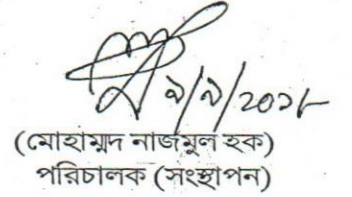 ৯/৯/২০১৮
(মোহাম্মদ নাজমুল হক)
পরিচালক (সংস্থাপন)